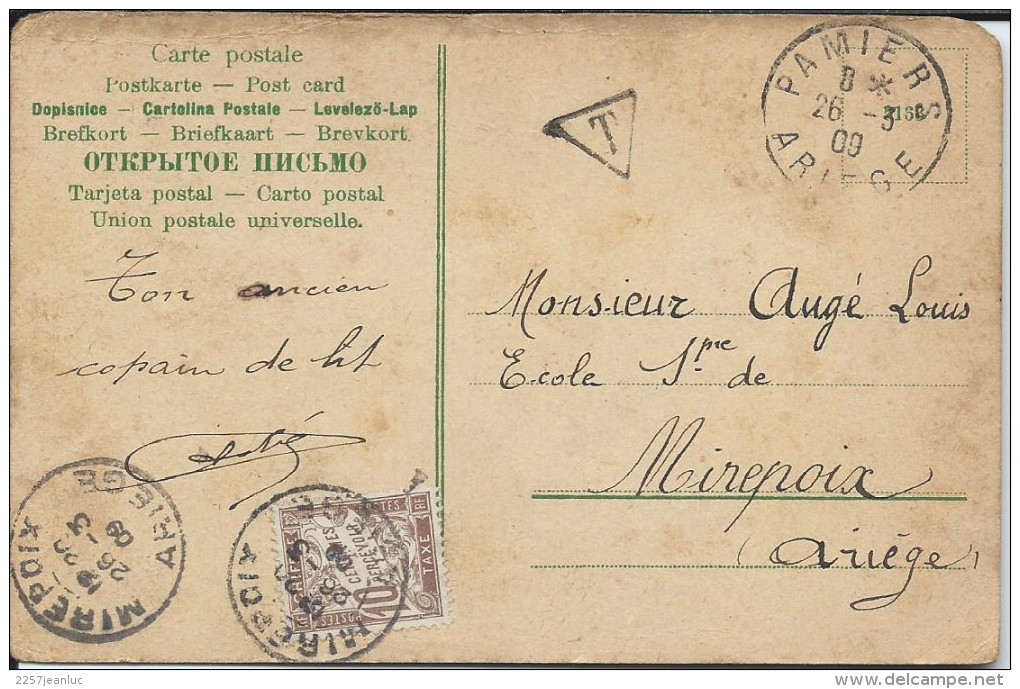 Carte postale
Postkarte — Post card
Dopisnice — Cartolina Postale — Levelező-Lap
Brefkort — Briefkaart — Brevkort
ОТКРЫТОЕ ПИСЬМО
Tarjeta postal — Carto postal
Union postale universelle.
Ton ancien
copain de lit
T
PAMIERS
26 -3
09
ARIEGE
Monsieur Augé Louis
Ecole Sᵖʳᵉ de
Mirepoix
(Ariège)
MIREPOIX
26 -3
09
ARIEGE
MIREPOIX
26 -3
09
POSTES
10 CENTIMES
A PERCEVOIR
TAXE
2257jeanluc
delcampe.net